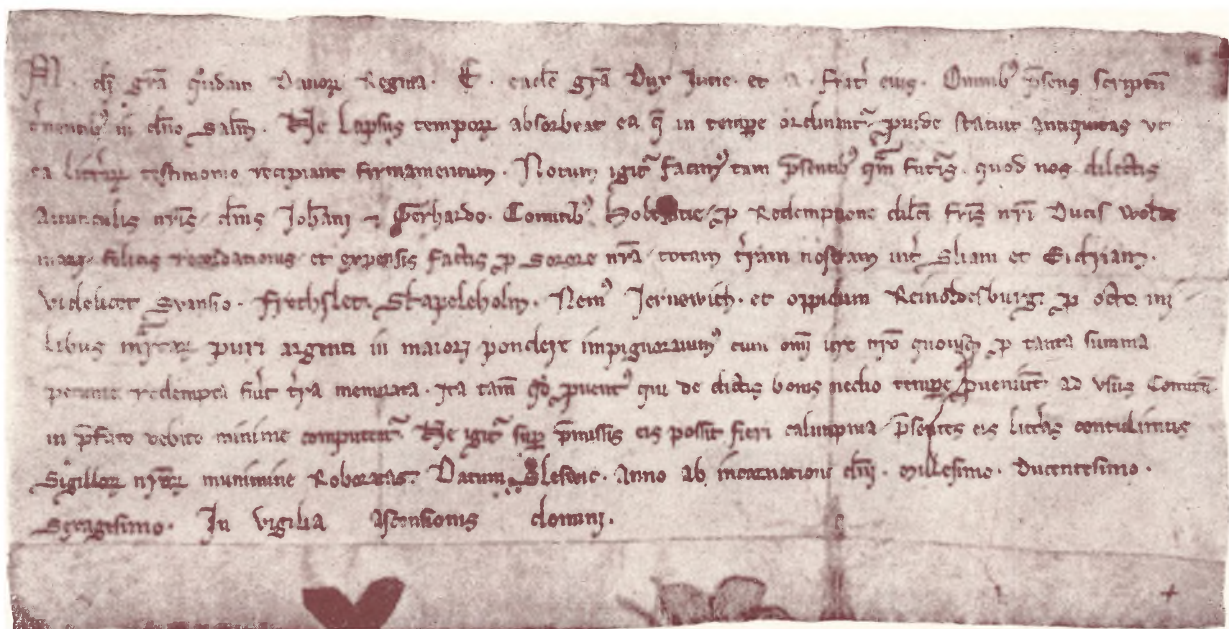 M. di gra quondam Danorum Regina. E. eadem gra Dux Jucie. et A. Frater eius. Omnibus presens scriptum
cernentibus in dno Salutem. Ne lapsus temporum absorbeat ea que in tempore ordinantur prouide statuit antiquitas vt
ea litterarum testimonio recipiant firmamentum. Notum igitur facimus tam presentibus quam futuris. quod nos dilectis
Auunculis nris dnis Johanni et Gerhardo. Comitibus Holtzatie pro Redempcione dilecti fratris nri Ducis Wolde
mari felicis recordationis et expensis factis pro sorore nra totam terram nostram inter Sliam et Eidriam.
videlicet Svansio. Frethslet. Stapeleholm. Nemus Jernewich. et oppidum Reinoldesburg. pro octo mi
libus marcarum puri argenti in maiori pondere impignorauimus cum omni iure nro quousque pro tanta summa
pecunie redempta fuerit terra memorata. Ita tamen quod prouentus qui de dictis bonis medio tempore prouenerint ad vsus Comitum
in prefato debito minime computentur Ne igitur super premissis eis possit fieri calumpnia presentes eis litteras contulimus
Sigillorum nostrorum munimine Roboratas. Datum Sleswic. Anno ab incarnatione dni. millesimo. ducentesimo.
Sexagesimo. In vigilia ascensionis domini.